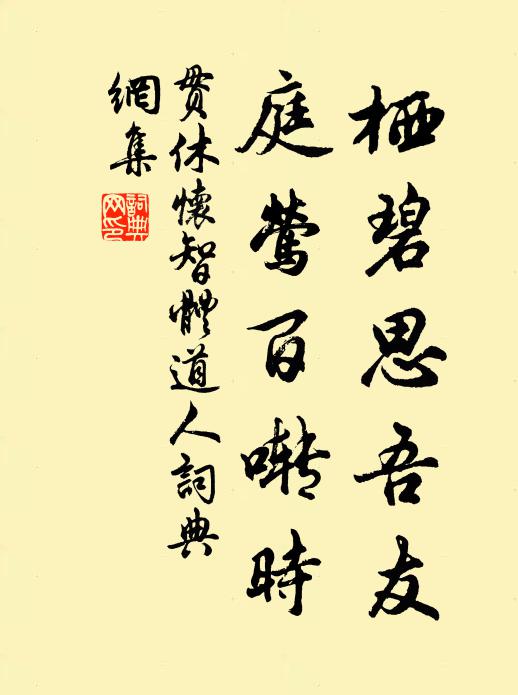 栖碧思吾友
庭莺百啭時
贯休懷智體道人詞典
網集
詞典
网印